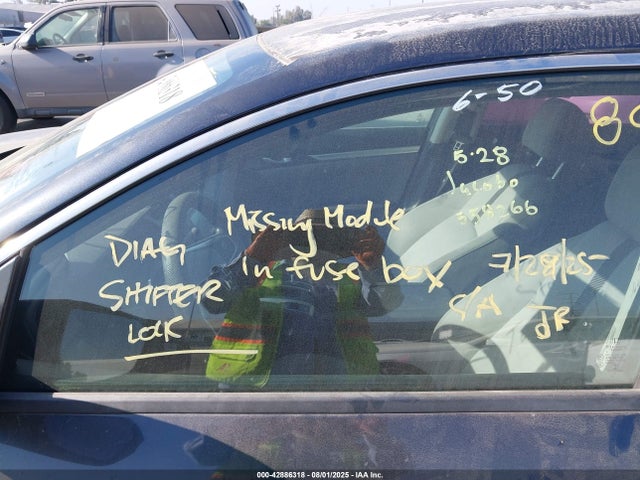 6-50
5.28
358266
Missing Module
in fuse box
7/28/25
S/A
JR
DIAG
SHIFTER
LOCK
000-42886318 - 08/01/2025 - IAA Inc.